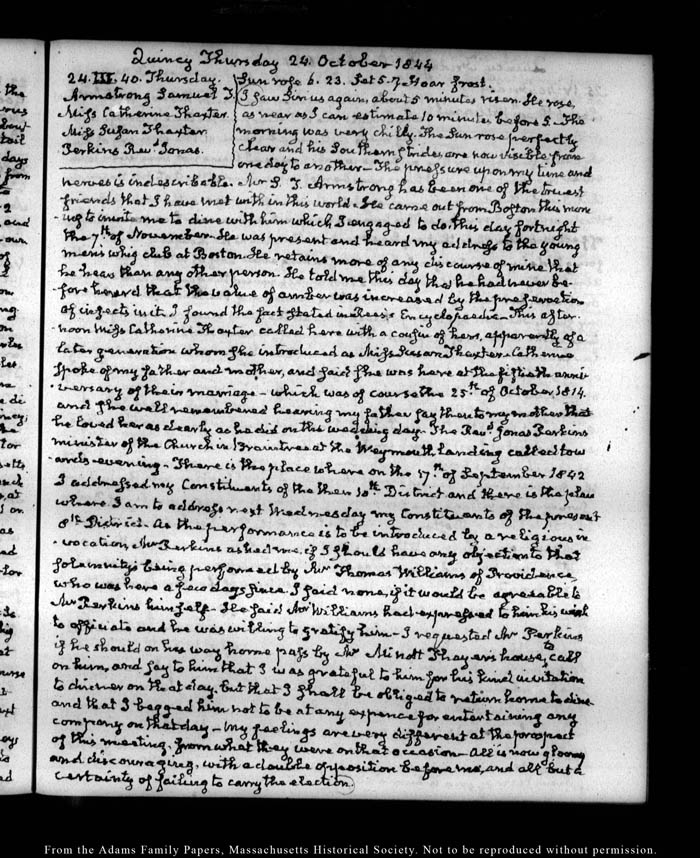 Quincy Thursday 24. October 1844
24. III. 40. Thursday.
Armstrong Samuel T.
Miss Catherine Thaxter
Miss Susan Thaxter
Perkins Revd Jonas.
Sun rose 6. 23. Set 5-7. Hoar frost.
I saw Sun us again, about 5 minutes risen. He rose,
as near as I can estimate 10 minutes before 5 - The
morning was very chilly. The Sun rose perfectly
clear and his Southern strides are now visible from
one day to another - The pressure upon my time and
nerves is indescribable. Mr S. T. Armstrong has been one of the truest
friends that I have met with in this world. He came out from Boston this morn
-ing to invite me to dine with him which I engaged to do, this day fortnight
the 7th of November. He was present and heard my address to the young
mens whig club at Boston. He retains more of any discourse of mine that
he hears than any other person. He told me this day that he had never be-
-fore heard that the value of amber was increased by the preservation
of insects in it. I found the fact stated in Rees's Encyclopaedia - This after-
noon Miss Catherine Thaxter called here with a cousin of hers, apparently of a
later generation whom she introduced as Miss Susan Thaxter. Catherine
spoke of my father and mother, and said she was here at the fiftieth anni-
-versary of their marriage - which was of course the 25th of October 1814.
and she well remembered hearing my father say then to my mother that
he loved her as dearly as he did on the wedding day. The Revd Jonas Perkins
minister of the Church in Braintree at the Weymouth Landing called tow
-ards evening - There is the place where on the 17th of September 1842
I addressed my Constituents of the then 10th District and there is the place
where I am to address next Wednesday my Constituents of the present
8th District. As the performance is to be introduced by a religious in
-vocation, Mr Perkins asked me if I should have any objection to that
solemnity's being performed by Mr Thomas Williams of Providence,
who was here a few days since. I said none, if it would be agreeable to
Mr Perkins himself - He said Mr Williams had expressed to him his wish
to officiate and he was willing to gratify him - I requested Mr Perkins
if he should on his way home pass by Mr Minott Thayer's house, to call
on him, and say to him that I was grateful to him for his kind invitation
to dinner on that day, but that I shall be obliged to return home to dine
and that I begged him not to be at any expence for entertaining any
company on that day - My feelings are very different at the prospect
of this meeting, from what they were on that occasion - All is now gloomy
and discouraging, with a double opposition before me, and all but a
certainty of failing to carry the election
From the Adams Family Papers, Massachusetts Historical Society. Not to be reproduced without permission.